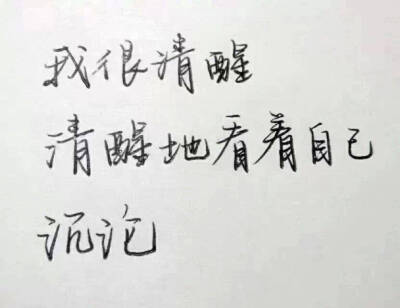 我很清醒
清醒地看着自己
沉沦